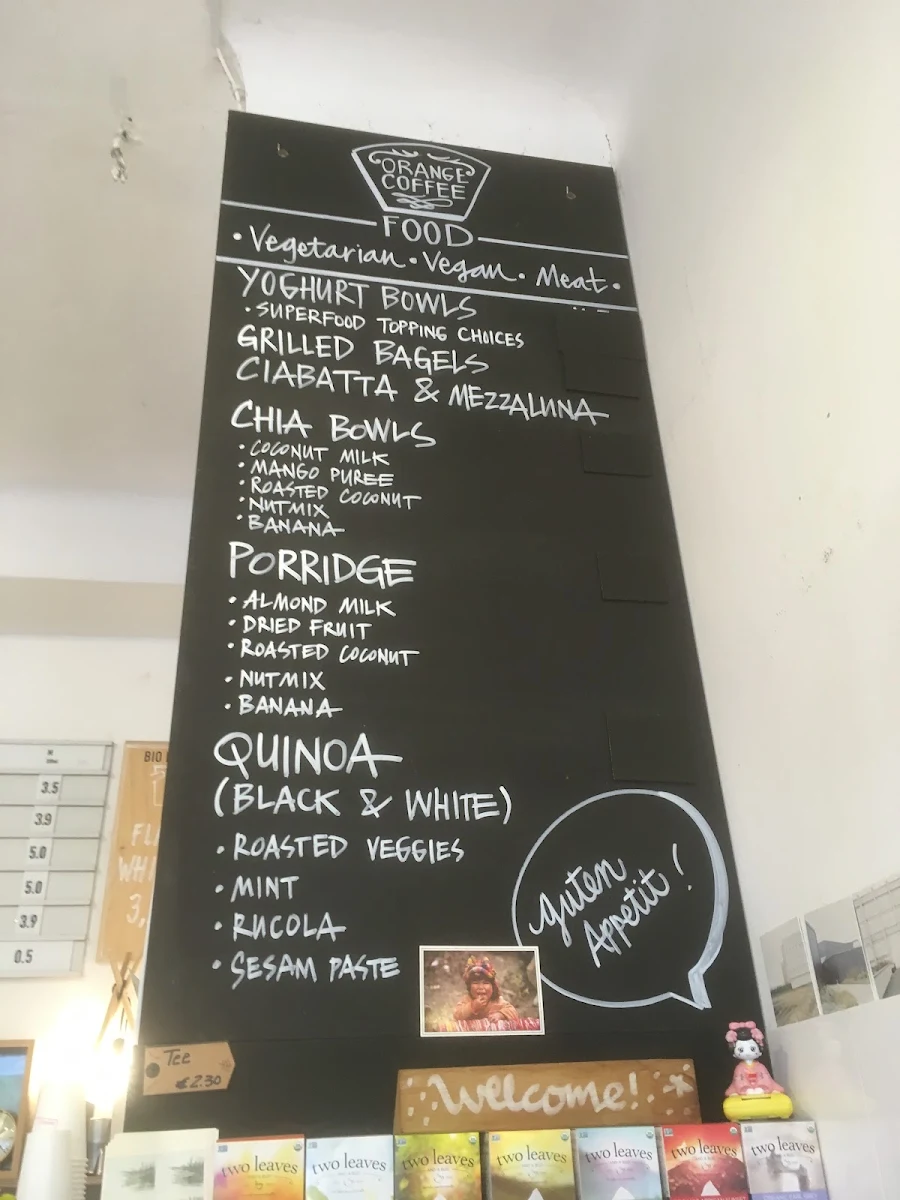 ORANGE
COFFEE
FOOD
• Vegetarian • Vegan • Meat •
YOGHURT BOWLS
• SUPERFOOD TOPPING CHOICES
GRILLED BAGELS
CIABATTA & MEZZALUNA
CHIA BOWLS
• COCONUT MILK
• MANGO PUREE
• ROASTED COCONUT
• NUTMIX
• BANANA
PORRIDGE
• ALMOND MILK
• DRIED FRUIT
• ROASTED COCONUT
• NUTMIX
• BANANA
QUINOA
(BLACK & WHITE)
• ROASTED VEGGIES
• MINT
• RUCOLA
• SESAM PASTE
guten
Appetit!
3.5
3.9
5.0
5.0
3.9
0.5
BIO
FL
WHI
3,
Tee
€2.30
Welcome!
two leaves
two leaves
two leaves
two leaves
two leaves
two leaves
two leaves